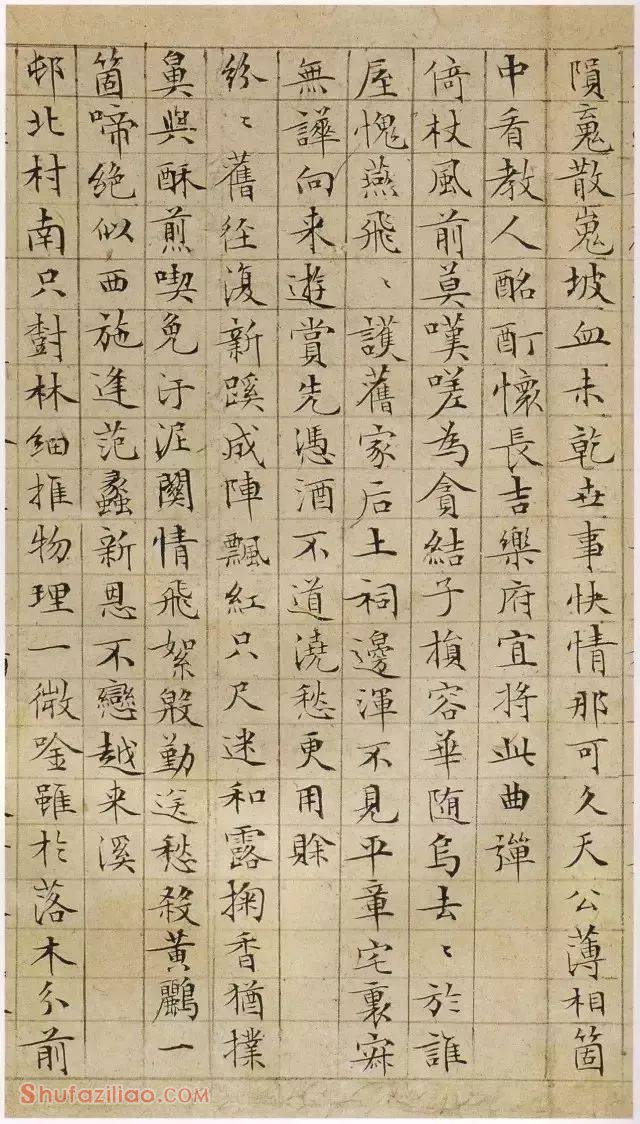 隕散嵬坡血未乾世事快情那可久天公薄相箇
中看教人酩酊懷長吉樂府宜将此曲彈
倚杖風前莫嘆嗟為貪結子損容華随烏去〻於誰
屋愧燕飛〻護舊家后土祠邊渾不見平章宅裏寂
無譁向来遊賞先憑酒不道澆愁更用賒
紛〻舊径復新蹊成陣飄紅只尺迷和露掬香猶撲
鼻與酥煎喫免汙泥関情飛絮殷勤送愁殺黄鸝一
箇啼絶似西施逢范蠡新恩不戀越来溪
邨北村南只對林細推物理一微唫雖於落木分前
Shufaziliao.com